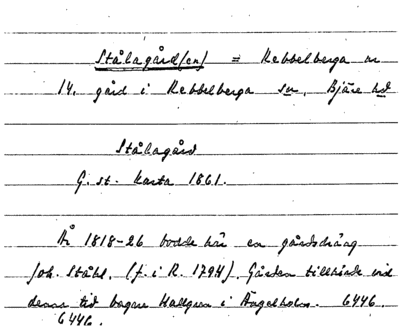 Stålagård(en) = Rebbelberga nr
14. gård i Rebbelberga sn, Bjäre hd
Stålagård
G. st. karta 1861.
År 1818-26 bodde här en gårdsdräng
Joh. Ståhl. (f. i R. 1794). Gården tillhörde vid
denna tid bagare Hallgren i Ängelholm. 6446.
6446.